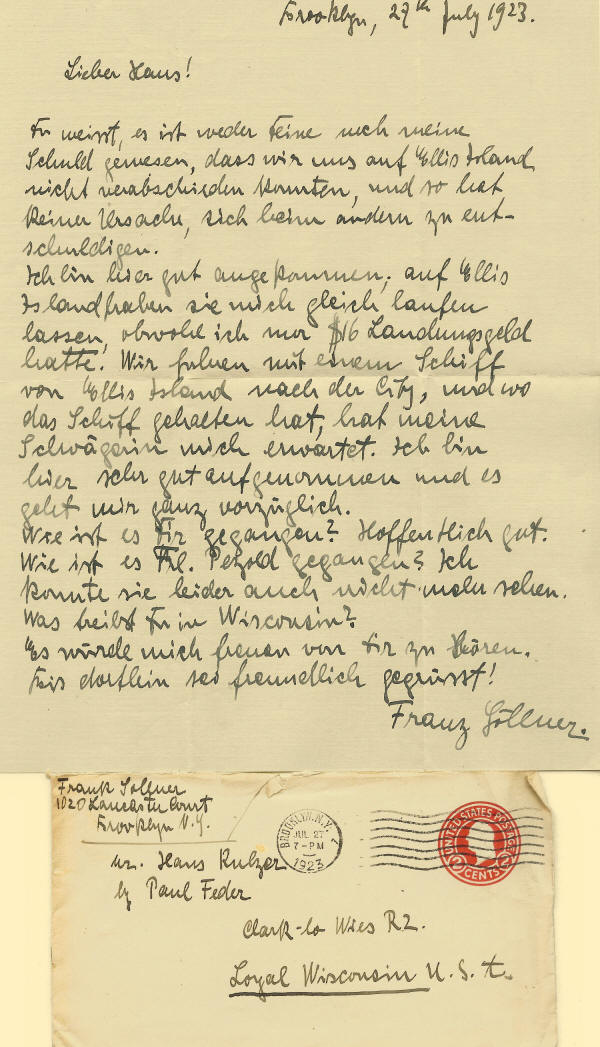 Brooklyn, 27th July 1923.
Lieber Hans!
Du weisst, es ist weder Deine noch meine
Schuld gewesen, dass wir uns auf Ellis Island
nicht verabschieden konnten, und so hat
keiner Ursache, sich beim andern zu ent-
schuldigen.
Ich bin hier gut angekommen; auf Ellis
Island haben sie mich gleich laufen
lassen, obwohl ich nur $16 Landungsgeld
hatte. Wir fuhren mit einem Schiff
von Ellis Island nach der City, und wo
das Schiff gehalten hat, hat meine
Schwägerin mich erwartet. Ich bin
hier sehr gut aufgenommen und es
geht mir ganz vorzüglich.
Wie ist es Dir gegangen? Hoffentlich gut.
Wie ist es Frl. Petzold gegangen? Ich
konnte sie leider auch nicht mehr sehen.
Was treibst Du in Wisconsin?
Es würde mich freuen von Dir zu hören.
Bis dorthin sei freundlich gegrüsst!
Franz Göllner.
Frank Sollner
1020 Lancaster Court
Brooklyn N.Y.
BROOKLYN, N.Y.
JUL 27
7-PM
1923
UNITED STATES POSTAGE
2 CENTS 2
Mr. Hans Kulzer
by Paul Feder
Clark-Co Wies R2.
Loyal Wisconsin U.S.A.